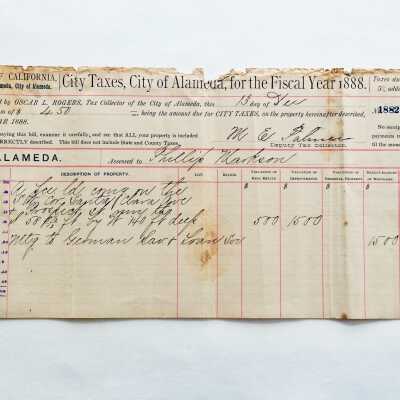 OF CALIFORNIA,
Alameda, City of Alameda.
City Taxes, City of Alameda, for the Fiscal Year 1888.
Taxes due
5% added
d by OSCAR L. ROGERS, Tax Collector of the City of Alameda, this 13 day of Dec
1882
m of $ 4.50 being the amount due for CITY TAXES, on the property hereafter described,
AR 1888.
aying this bill, examine it carefully, and see that ALL your property is included
CORRECTLY described. This bill does not include State and County Taxes.
M. E. Palmer
Deputy Tax Collector.
No
payments
to
ALAMEDA.
Assessed to Phillip Markson
DESCRIPTION OF PROPERTY.
LOT.
BLOCK.
VALUATION OF REAL ESTATE
VALUATION OF IMPROVEMENTS.
VALUATION OF PERSONAL PROPERTY.
OF MORTGAGE.
$ $ $ $
A Lot ld comg on the
S W cor Santa Clara Ave
& Prospect St runng thc
S 50 ft by W 140 ft deep 500 1500
Mtg to German Sav & Loan Soc 1500